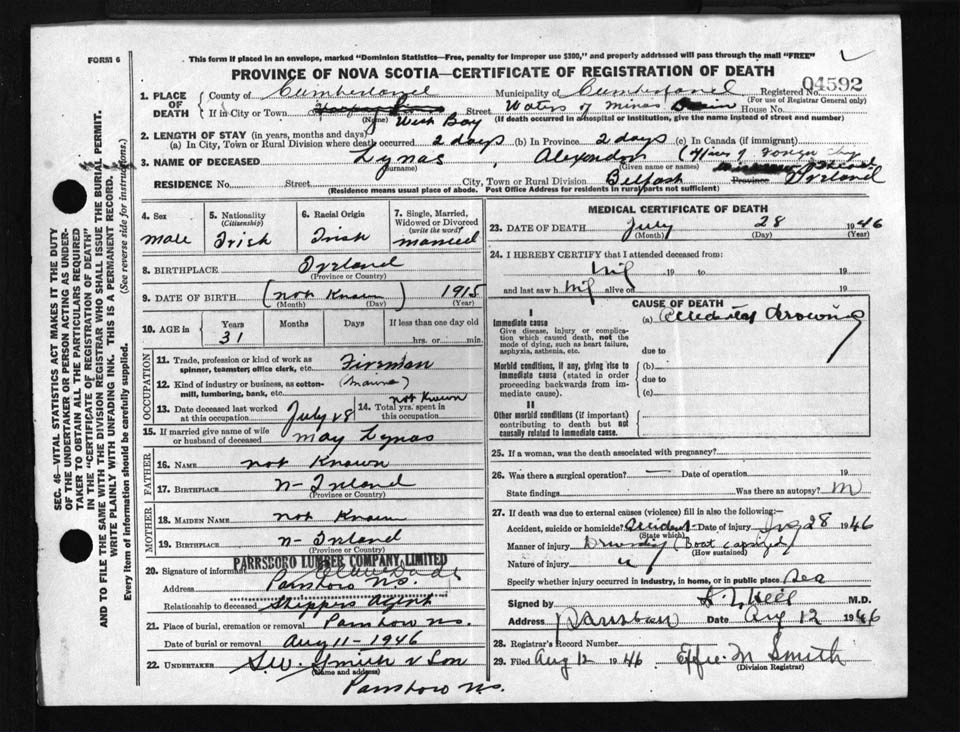 This form if placed in an envelope, marked "Dominion Statistics—Free, penalty for improper use $300," and properly addressed will pass through the mail "FREE"
FORM 6
PROVINCE OF NOVA SCOTIA—CERTIFICATE OF REGISTRATION OF DEATH
04592
1. PLACE OF DEATH
County of Cumberland Municipality of Cumberland Registered No.
(For use of Registrar General only)
If in City or Town Street Waters of Minas House No.
(Name) West Bay (If death occurred in a hospital or institution, give the name instead of street and number)
2. LENGTH OF STAY (in years, months and days)
(a) In City, Town or Rural Division where death occurred 2 days (b) In Province 2 days (c) In Canada (if immigrant)
3. NAME OF DECEASED Lynas, Alexander
(Surname) (Given name or names)
RESIDENCE No. Street City, Town or Rural Division Belfast Province Ireland
(Residence means usual place of abode. Post Office Address for residents in rural parts not sufficient)
SEC. 46—VITAL STATISTICS ACT MAKES IT THE DUTY
OF THE UNDERTAKER OR PERSON ACTING AS UNDER-
TAKER TO OBTAIN ALL THE PARTICULARS REQUIRED
IN THE "CERTIFICATE OF REGISTRATION OF DEATH"
AND TO FILE THE SAME WITH THE DIVISION REGISTRAR WHO SHALL ISSUE THE BURIAL PERMIT.
WRITE PLAINLY WITH UNFADING INK. THIS IS A PERMANENT RECORD.
Every item of information should be carefully supplied. (See reverse side for instructions.)
4. Sex
male
5. Nationality
(Citizenship)
Irish
6. Racial Origin
Irish
7. Single, Married,
Widowed or Divorced
(write the word)
married
8. BIRTHPLACE Ireland
(Province or Country)
9. DATE OF BIRTH (not known) 1915
(Month) (Day) (Year)
10. AGE in
Years Months Days If less than one day old
31 hrs. or min.
OCCUPATION
11. Trade, profession or kind of work as
spinner, teamster, office clerk, etc. Fireman
12. Kind of industry or business, as cotton-
mill, lumbering, bank, etc. (Marine)
13. Date deceased last worked
at this occupation July 28
14. Total yrs. spent in
this occupation not known
15. If married give name of wife
or husband of deceased May Lynas
FATHER
16. NAME not known
17. BIRTHPLACE N- Ireland
(Province or Country)
MOTHER
18. MAIDEN NAME not known
19. BIRTHPLACE N- Ireland
(Province or Country)
PARRSBORO LUMBER COMPANY, LIMITED
20. Signature of informant
Address Parrsboro N.S.
Relationship to deceased Shippers Agent
21. Place of burial, cremation or removal Parrsboro N.S.
Date of burial or removal Aug 11 - 1946
22. UNDERTAKER S.W. Smith & Son
(Name and address)
Parrsboro N.S.
MEDICAL CERTIFICATE OF DEATH
23. DATE OF DEATH July 28 1946
(Month) (Day) (Year)
24. I HEREBY CERTIFY that I attended deceased from:
nil 19 to 19
and last saw h nil alive on 19
CAUSE OF DEATH
I
Immediate cause
Give disease, injury or complica-
tion which caused death, not the
mode of dying, such as heart failure,
asphyxia, asthenia, etc.
(a) Accidental drowning
due to
Morbid conditions, if any, giving rise to
immediate cause (stated in order
proceeding backwards from im-
mediate cause).
(b)
due to
(c)
II
Other morbid conditions (if important)
contributing to death but not
causally related to immediate cause.
25. If a woman, was the death associated with pregnancy?
26. Was there a surgical operation? — Date of operation 19
State findings Was there an autopsy?
27. If death was due to external causes (violence) fill in also the following:—
Accident, suicide or homicide? Accident Date of injury 28 1946
(State which)
Manner of injury Drowning (Boat capsized)
(How sustained)
Nature of injury "
Specify whether injury occurred in industry, in home, or in public place. Sea
Signed by M.D.
Address Parrsboro Date Aug 12 1946
28. Registrar's Record Number
29. Filed Aug 12 1946 Effie M Smith
(Division Registrar)